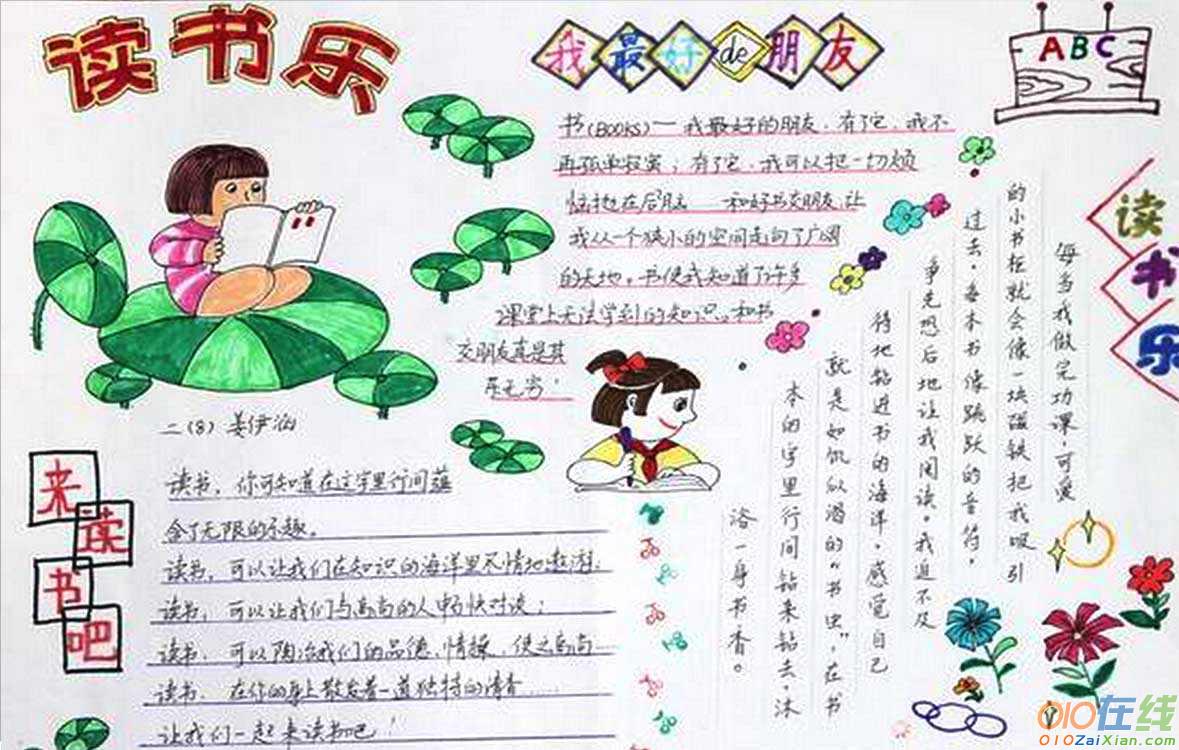 读书乐
我最好de朋友
ABC
书(BOOKS)一我最好的朋友，有了它，我不
再孤单寂寞；有了它，我可以把一切烦
恼抛在后脑 一和好书交朋友，让
我从一个狭小的空间走向了广阔
的天地。书使我知道了许多
课堂上无法学到的知识。和书
交朋友真是其
乐无穷！
读书乐
每当我做完功课，可爱
的小书柜就会像一块磁铁把我吸引
过去，每本书像跳跃的音符，
争先恐后地让我阅读。我迫不及
待地钻进书的海洋，感觉自己
就是如饥似渴的“书虫”，在书
本的字里行间钻来钻去，沐
浴一身书香。
二(8) 姜伊涵
来读书吧
读书，你可知道在这字里行间蕴
含了无限的乐趣。
读书，可以让我们在知识的海洋里尽情地遨游；
读书，可以让我们与高尚的人畅快对谈；
读书，可以陶冶我们的品德、情操，使之高尚
读书，在你的身上散发着一道独特的清香……
让我们一起来读书吧！
010在线
010ZaiXian.com